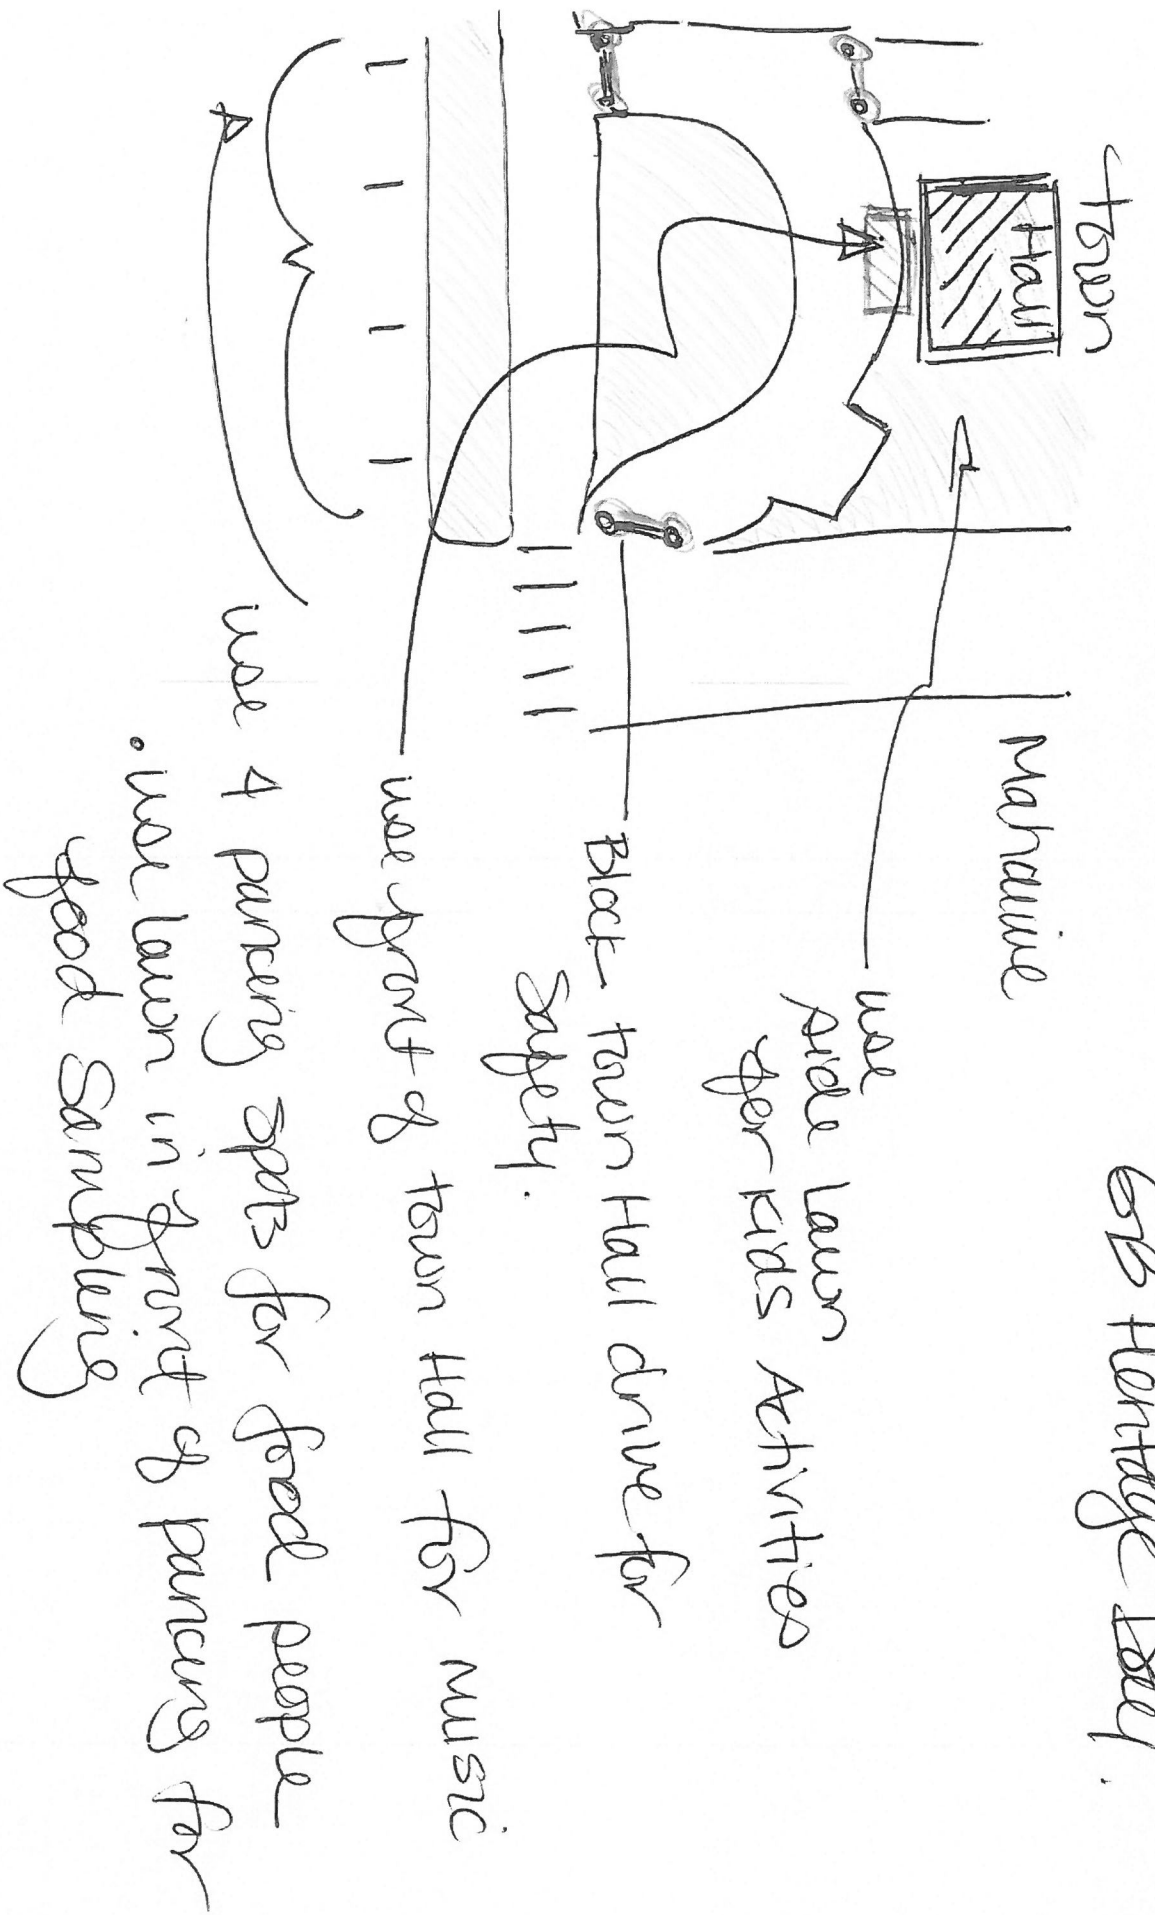 GB Heritage Day.
Town
Hall
Mahaiwe
use
side lawn
for Kids Activities
Block town Hall drive for
safety.
use front of town Hall for music
use 4 parking spots for food people
• use lawn in front of parking for
food sampling